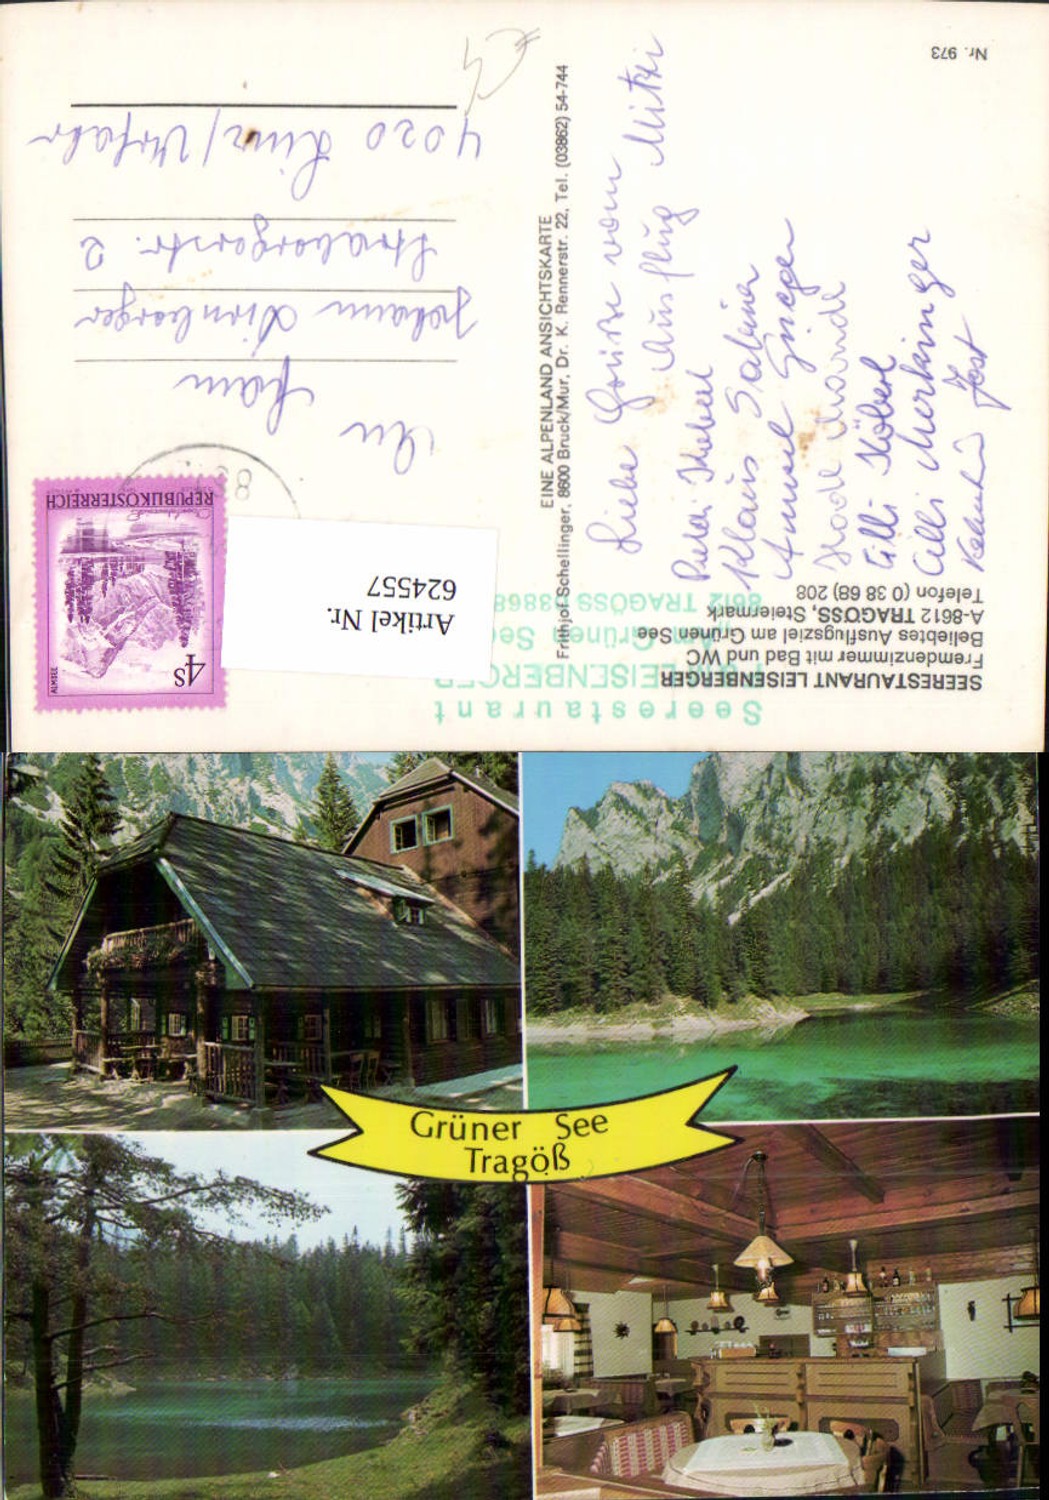 Nr. 973
SEERESTAURANT LEISENBERGER
Fremdenzimmer mit Bad und WC
Beliebtes Ausflugsziel am Grünen See
A-8612 TRAGÖSS, Steiermark
Telefon (0 38 68) 208
Seerestaurant
LEISENBERGER
"Am Grünen See
8612 TRAGÖSS 03868
EINE ALPENLAND ANSICHTSKARTE
Frithjof Schellinger, 8600 Bruck/Mur, Dr. K. Rennerstr. 22, Tel. (03862) 54-744
Liebe Grüße vom
Ausflug Mitzi
Klaus Sabina
Annerl Grieger
Cilli Köberl
Cilli Merkinger
Jost
4S
ALMSEE
REPUBLIK ÖSTERREICH
Artikel Nr.
624557
An
Johann
2
4020 Linz/Urfahr
Grüner See
Tragöß